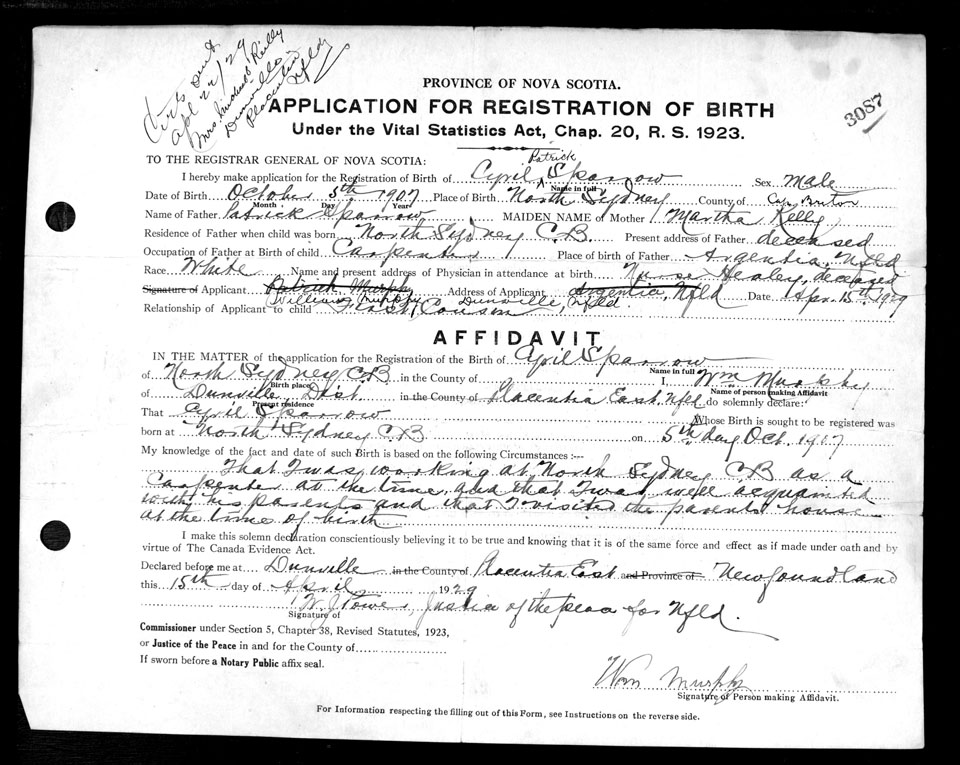 Certs sent
Apl 22/29
Mrs. Michael Reilly
Dunville
Placentia
Nfld
3087
PROVINCE OF NOVA SCOTIA.
APPLICATION FOR REGISTRATION OF BIRTH
Under the Vital Statistics Act, Chap. 20, R. S. 1923.
TO THE REGISTRAR GENERAL OF NOVA SCOTIA:
Patrick
I hereby make application for the Registration of Birth of Cyril ^ Sparrow Sex Male
Name in full
Date of Birth October 5th 1907 Place of Birth North Sydney County of Cape Breton
Month Day Year
Name of Father Patrick Sparrow MAIDEN NAME of Mother Martha Kelly
Residence of Father when child was born North Sydney C.B. Present address of Father deceased
Occupation of Father at Birth of child Carpenter Place of birth of Father Argentia, Nfld
Race White Name and present address of Physician in attendance at birth Nurse Healey, deceased
Signature of Applicant Patrick Murphy Address of Applicant Argentia, Nfld Date Apr. 15th 1929
William Murphy Dunville, Nfld.
Relationship of Applicant to child First Cousin
AFFIDAVIT
IN THE MATTER of the application for the Registration of the Birth of Cyril Sparrow
Name in full
of North Sydney C.B. in the County of I, Wm Murphy
Birth place Name of person making Affidavit
of Dunville Dist in the County of Placentia East, Nfld do solemnly declare:
Present residence
That Cyril Sparrow Whose Birth is sought to be registered was
born at North Sydney C B on 5th day Oct. 1907
My knowledge of the fact and date of Birth is based on the following Circumstances :---
That I was working at North Sydney CB as a
Carpenter at the time, and that I was well acquainted
with his parents and that I visited the parents house
at the time of birth
I make this solemn declaration conscientiously believing it to be true and knowing that it is of the same force and effect as if made under oath and by
virtue of The Canada Evidence Act.
Declared before me at Dunville in the County of Placentia East and Province of Newfoundland
this 15th day of April 1929
W. J. Power, Justice of the peace for Nfld.
Signature of
Commissioner under Section 5, Chapter 38, Revised Statutes, 1923,
or Justice of the Peace in and for the County of
If sworn before a Notary Public affix seal.
Wm Murphy
Signature of Person making Affidavit.
For Information respecting the filling out of this Form, see Instructions on the reverse side.